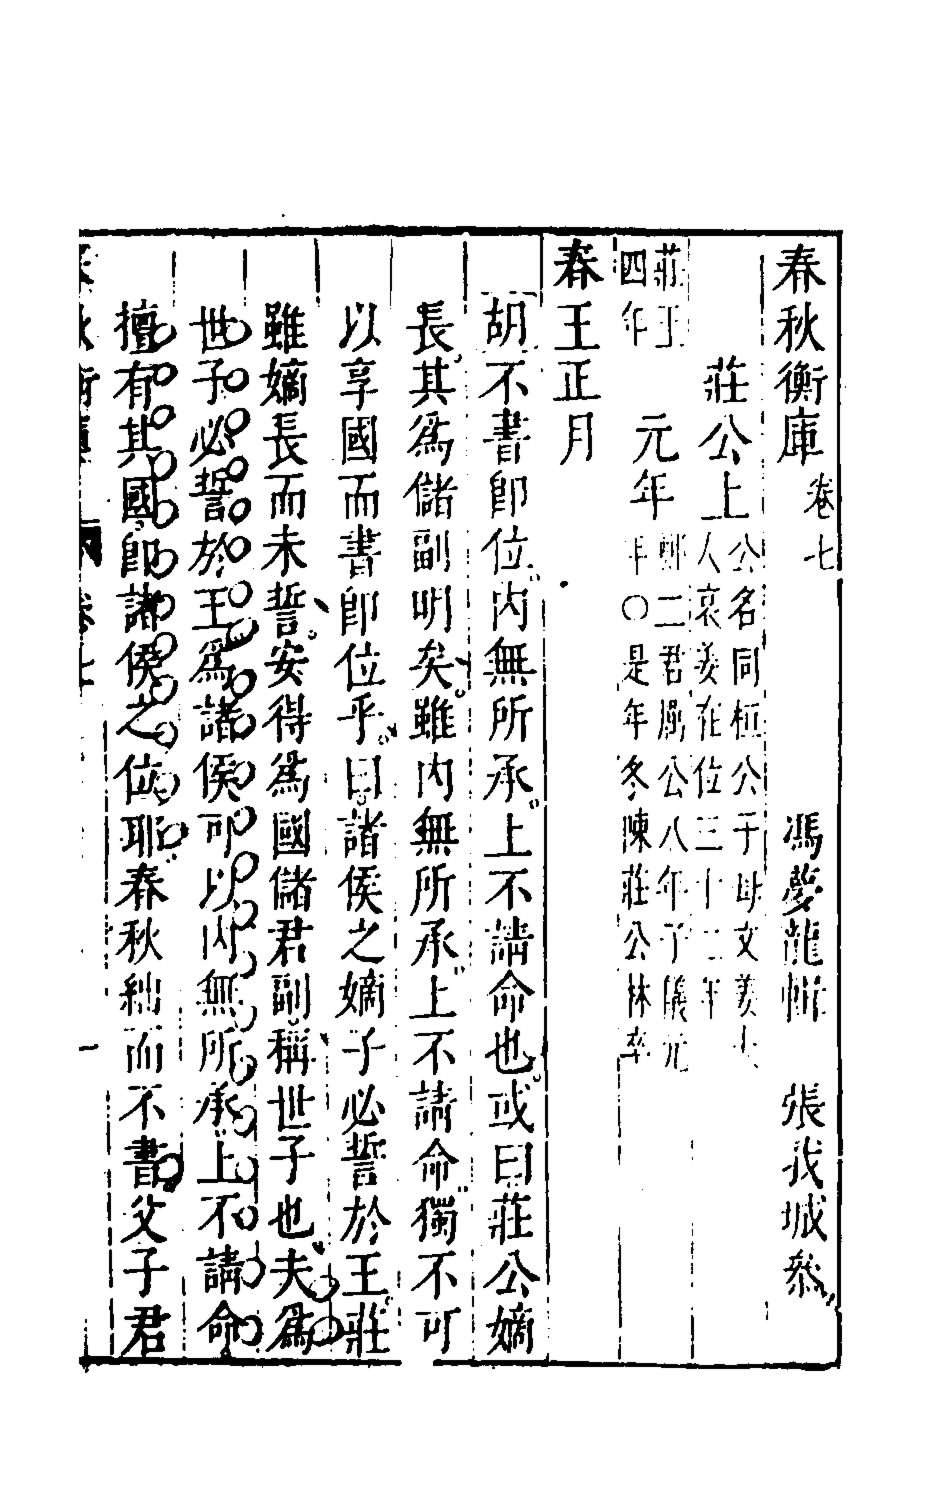 春秋衡庫 卷七 馮夢龍輯 張我城叅
莊公上 公名同桓公子母文姜夫
人哀姜在位三十二年
莊王
四年
元年 鄭二君厲公八年子儀元
年○是年冬陳莊公林卒
春王正月
胡不書卽位內無所承上不請命也或曰莊公嫡
長其爲儲副明矣雖內無所承上不請命獨不可
以享國而書卽位乎曰諸侯之嫡子必誓於王莊
雖嫡長而未誓安得爲國儲君副稱世子也夫爲
世子必誓於王爲諸侯可以內無所承上不請命
擅有其國卽諸侯之位耶春秋絀而不書父子君
春秋衡庫 卷七 一